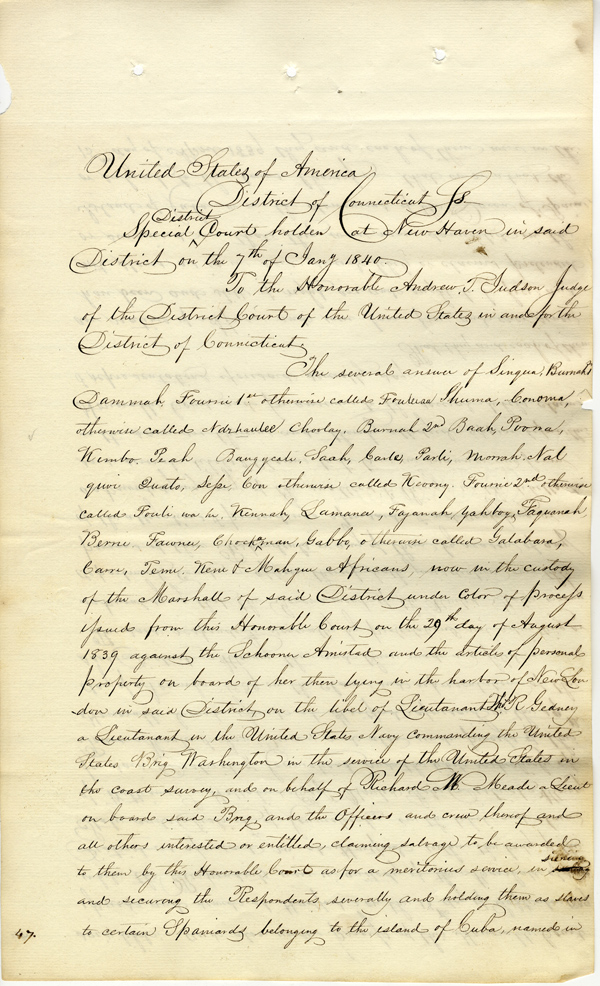 United States of America
District of Connecticut Ss
District
Special Court holden at New Haven in said
District on the 7th of Jany 1840.
To the Honorable Andrew. T. Judson Judge
of the District Court of the United States in and for the
District of Connecticut.
The several answer of Sinqua, Burnah 1st
Dammah, Fourrie 1st otherwise called Shuma, Conoma,
otherwise called Ndzhaulee Chorlay, Burnah 2nd Baah, Poona,
Kimbo. Peah Bangyeah, Saah, Carle, Parli, Morrah. Nat
quoi Quato, Sesse, Con otherwise called Fourrie 2nd otherwise
called Fouli wa lu. Kennah, Lamana, Fajanah, Yahboy, Faquanah
Berrie. Fawnu, Chockmau, Gabbo, otherwise called Galabara,
Carre, Teme. Kene & Mahgue Africans, now in the custody
of the Marshall of said District under color of process
issued from this Honorable Court on the 29th day of August
1839 against the Schooner Amistad and the article of personal
property on board of her then lying in the harbor of New Lon
don in said District on the libel of Lieutanant Thos R. Gedney
a Lieutanant in the United States Navy commanding the United
States Brig Washington in the service of the United States in
the coast survey, and on behalf of Richard W. Meade a Lieut
on board said Brig, and the Officers and crew therof and
all others interested or entitled, claiming salvage to be awarded
to them by this Honorable Court as for a meritorius service, in
and securing the Respondents severally and holding them as slaves
47. to certain Spaniards belonging to the island of Cuba, named in